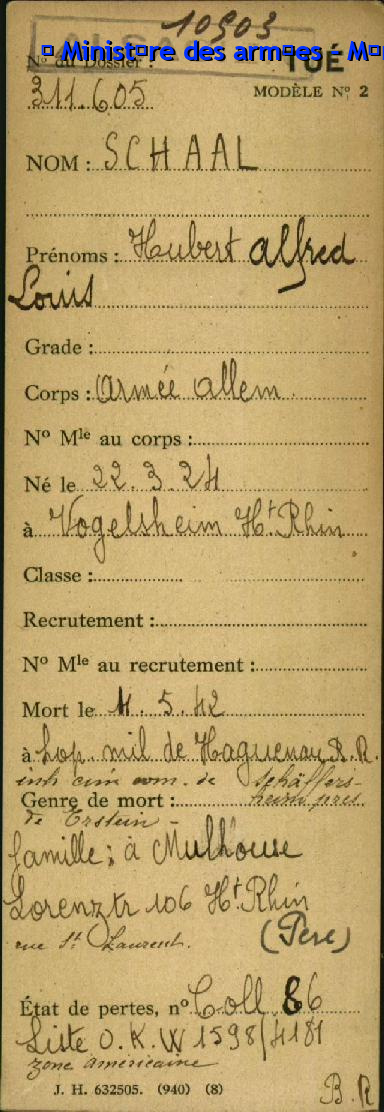 10903
ALSA
Ministre des armes - M
N° du Dossier :
TUÉ
311.605
MODÈLE N° 2
NOM : SCHAAL
Prénoms : Hubert Alfred
Louis
Grade :
Corps : Armée allem
N° Mle au corps :
Né le 22.3.24
à Vogelsheim Ht Rhin
Classe :
Recrutement :
N° Mle au recrutement :
Mort le 4.5.42
à hop. mil de Haguenau B.R.
inh cim com. de Schäffers-
Genre de mort : heim près
de Erstein -
famille : à Mulhouse
Lorenztr 106 Ht Rhin
rue St Laurent. (Père)
État de pertes, n° Coll 86
Liste O.K.W 1598/4181
zone américaine
J. H. 632505. (940) (8)
B.R